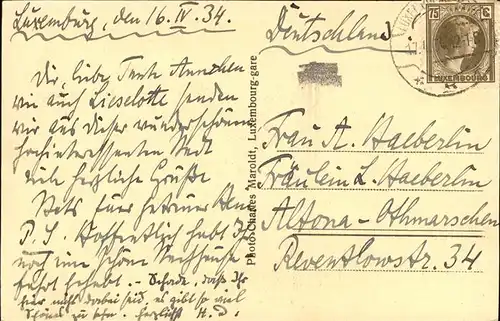 Luxemburg, den 16. IV. 34.
Dir, liebe Tante Annchen
wie auch Lieselotte senden
wir aus dieser wunderschönen
hochinteressanten Stadt
viele herzliche Grüße
Stets Euer getreuer
P.S. Hoffentlich habt Ihr
noch eine schöne
fahrt gehabt. - Schade, dass Ihr
hier nicht dabei seid, es gibt so viel
Schönes zu sehn. Herzlichst H. D.
Photo Charles Maroldt, Luxembourg-gare
Deutschland
75 C
LUXEMBOURG
Frau A. Haeberlin
Fräulein L. Haeberlin
Altona-Othmarschen
Reventlowstr. 34